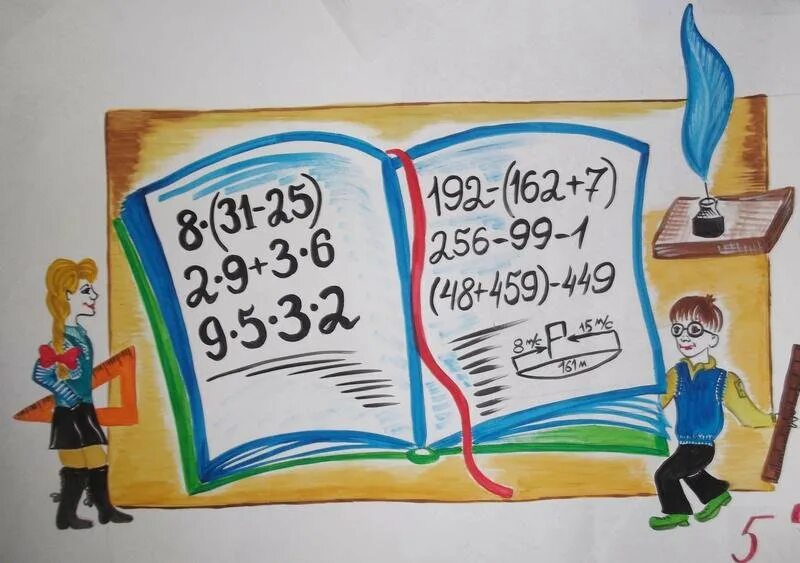 8·(31-25)
2·9+3·6
9·5·3·2
192-(162+7)
256-99-1
(48+459)-449
8 м/с 15 м/с
161 м
5